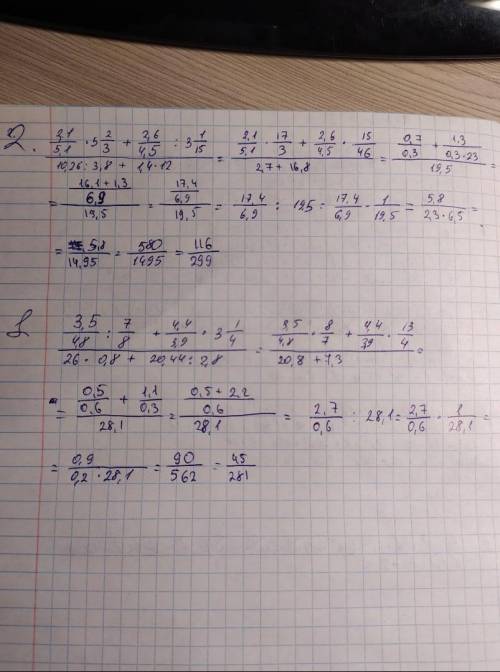 2. (2,1/5,1 · 5 2/3 + 2,6/4,5 : 3 1/15) / (10,26 : 3,8 + 14 · 12) = (2,1/5,1 · 17/3 + 2,6/4,5 · 15/46) / (2,7 + 16,8) = (0,7/0,3 + 1,3/(0,3·23)) / 19,5 =
= ((16,1 + 1,3)/6,9) / 19,5 = (17,4/6,9) / 19,5 = 17,4/6,9 : 19,5 = 17,4/6,9 · 1/19,5 = 5,8/(2,3 · 6,5) =
= 5,8/14,95 = 580/1495 = 116/299
1 (3,5/4,8 : 7/8 + 4,4/3,9 · 3 1/4) / (26 · 0,8 + 20,44 : 2,8) = (3,5/4,8 · 8/7 + 4,4/3,9 · 13/4) / (20,8 + 7,3) =
= (0,5/0,6 + 1,1/0,3) / 28,1 = ((0,5 + 2,2)/0,6) / 28,1 = 2,7/0,6 : 28,1 = 2,7/0,6 · 1/28,1 =
= 0,9/(0,2 · 28,1) = 90/562 = 45/281